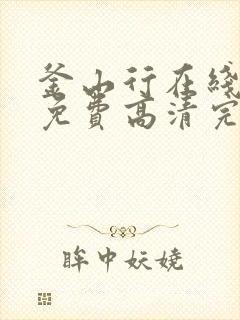 釜山行在线
免费高清完
眸中妖娆